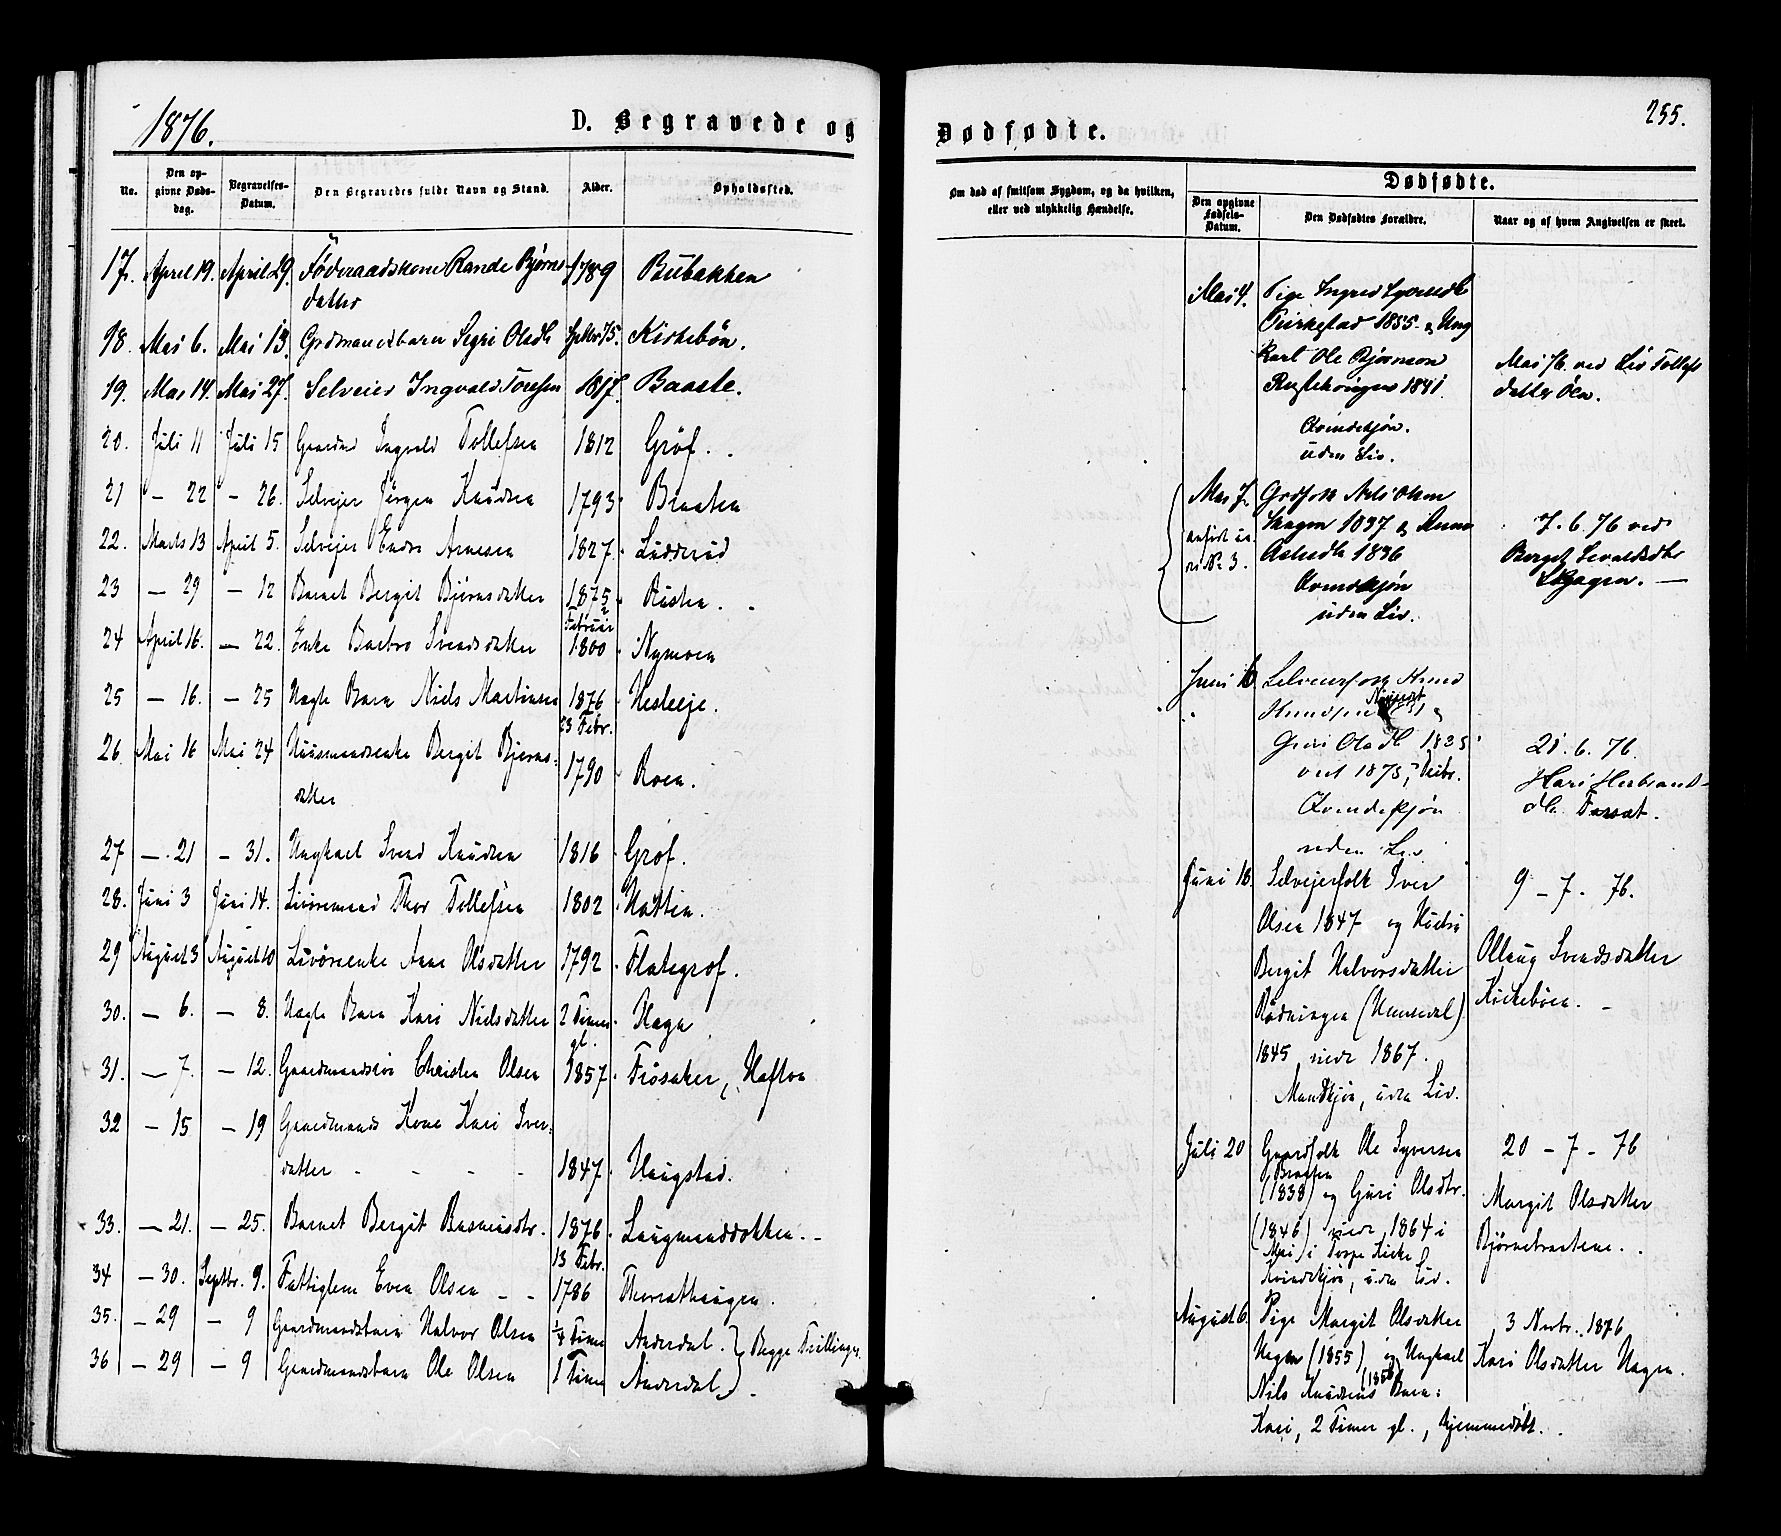 1876.
D. Begravede og
No.
Den opgivne Dødsdag.
Begravelses-Datum.
Den Begravedes fulde Navn og Stand.
Alder.
Opholdssted.
17. April 19. April 29. Føderaadskone Rande Bjørns- 1789 Bubakken
datter
18. Mai 6. Mai 13. Grdmandsbarn Sigri Olsdtr Kirkebøn.
19. Mai 14. Mai 27. Selveier Ingvald Toresen 1817. Baaste.
20. Juli 11 Juli 15 Gaardm Ingvald Tollefsen 1812 Gróf.
21 — 22 — 26. Selvejer Jørgen Knudsen 1793. Braaten
22. Marts 13 April 5. Selvejer Endre Arnesen 1827.
23 — 29 — 12 Barnet Bergit Bjørnsdatter 1875
Februar
24 April 16. — 22. Enke Barbro Svendsdatter 1800 Nymoen
25 — 16. — 25 Uægte Barn Niels Martinsen 1876
23 Febr.
26 Mai 16 Mai 24 Huusmandsenke Bergit Bjørns- 1790 Roen.
datter
27 — 21 — 31. Ungkarl Svend Knudsen 1816 Gróf.
28. Juni 3 Juni 14. Livøremand Thor Tollefsen 1802
29 August 3 August 10 Livøreenke Anne Olsdatter 1792 Flategrof.
30. — 6. — 8. Uægte Barn Kari Nielsdatter 2 Timer Hagen
gl.
31. — 7. — 12. Gaardmandssøn Christen Olsen 1857. Frøsaker,
32 — 15 — 19 Gaardmands Kone Kari Iver-
datter - - - - 1847 Haugstad.
33. — 21. — 25. Barnet Bergit Rasmusdtr. 1876.
13 Febr.
34 — 30. Septbr. 9. Fattiglem Even Olsen - - 1786
35. — 29 — 9 Gaardmandsbarn Halvor Olsen ¼ Time Anderdal. } Begge Trillinger.
36 — 29 — 9 Gaardmandsbarn Ole Olsen 1 Time Anderdal }
255.
Dødfødte.
Om død af smitsom Sygdom, og da hvilken,
eller ved ulykkelig Hændelse.
Dødfødte.
Den opgivne Fødsels-Datum.
Den Dødfødtes Forældre.
Naar og af hvem Angivelsen er skeet.
Mai 4. Pige Ingrid Syversdtr
1855. og Ung
karl Ole Bjørnson
1841.
Kvindekjøn.
uden Liv.
Mai 76. ved Liv Tollefs
datter Øen.
Mai 7. Grdfolk Nils Olsen
Skagen 1837 &
Aslesdtr 1836
Kvindekjøn
uden Liv.
anført
No 3.
7. 6. 76 ved
Bergit Sevaldsdtr
Skagen. —
Juni 16 Selveierfolk
Guri Olsdtr 1835
viet 1875,
Kvindekjøn
uden Liv
21. 6. 76.
Kari Herbrands-
dtr
Juni 18. Selvejerfolk Iver
Olsen 1847 og Hustru
Bergit Halvorsdatter
(Hemsedal)
1845 viede 1867.
Mandkjøn, uden Liv.
9 – 7 – 76.
Ollaug Svendsdatter
Kirkebøen. –
Juli 20 Gaardfolk Ole Syversen
Braaten
(1838) og Guri Olsdtr.
(1846) viede 1864 i
Mai i Torpe Kirke
Kvindekjøn, uden Liv.
20 – 7 – 76
Margit Olsdatter
Bjørnebraatene.
August 6. Pige Margit Olsdatter
Hagen (1855), og Ungkarl
Nils Knudsens Barn:
Kari, 2 Timer gl., hjemmedøbt.
3 Novbr. 1876
Kari Olsdatter Hagen.